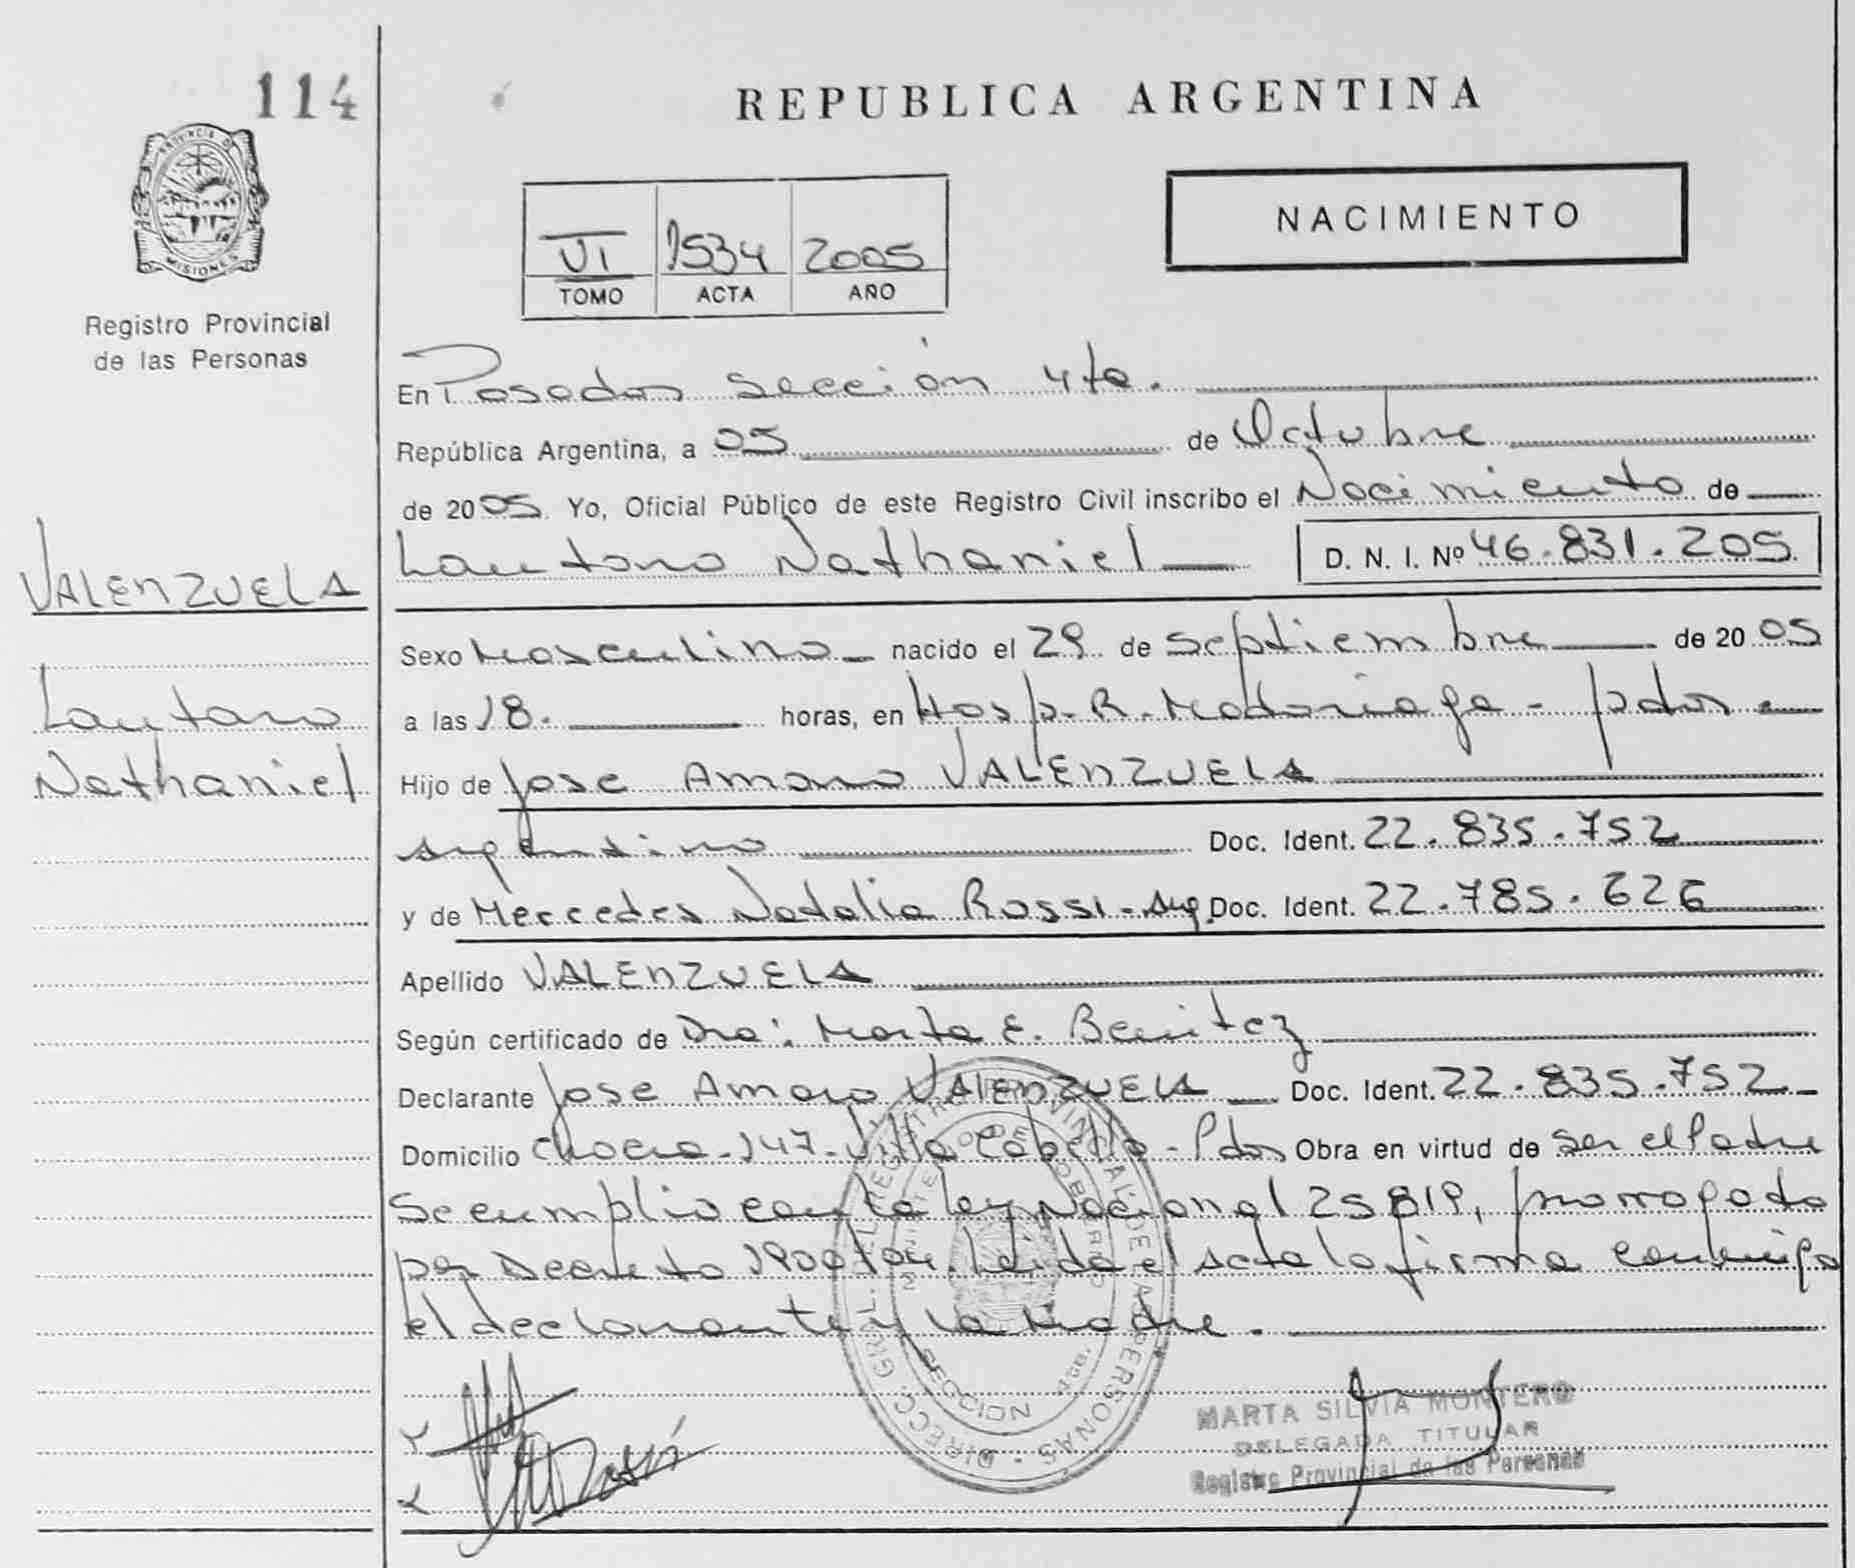 114
REPUBLICA ARGENTINA
PROVINCIA DE MISIONES
Registro Provincial
de las Personas
VI 1534 2005
TOMO ACTA AÑO
NACIMIENTO
En Posadas Sección 4ta.
República Argentina, a 05 de Octubre
de 2005 Yo, Oficial Público de este Registro Civil inscribo el Nacimiento de
Lautaro Nathaniel D. N. I. Nº 46.831.205
VALENZUELA
Lautaro
Nathaniel
Sexo Masculino nacido el 29 de Septiembre de 2005
a las 18. horas, en Hosp. R. Madariaga - Pdas
Hijo de Jose Amaro VALENZUELA
argentino Doc. Ident. 22.835.752
y de Mercedes Natalia Rossi - Arg. Doc. Ident. 22.785.626
Apellido VALENZUELA
Según certificado de Dra: Marta E. Benitez
Declarante Jose Amaro VALENZUELA Doc. Ident. 22.835.752
Domicilio Chacra 147 - Villa Cabello - Pdas Obra en virtud de ser el Padre
Se cumplio con la ley Nacional 25819, prorrogada
por Decreto 1900/04. Leida el acta la firma conmigo
el declarante y la Madre.
MARTA SILVIA MONTERO
DELEGADA TITULAR
Registro Provincial de las Personas